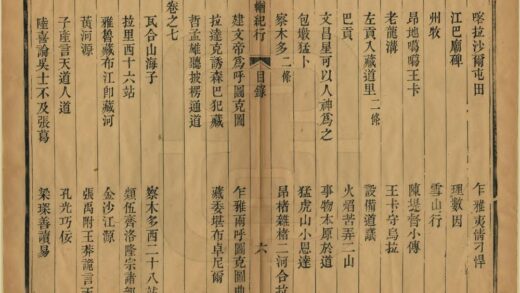 喀拉沙爾屯田　乍雅夷情刁悍
江巴廟碑　理數因
州牧　雪山行
昂地噶噶王卡　陳堤督小傳
老龍溝　王卡守烏拉
左貢入藏道里二條　設備道議
巴貢　火焰苦弄二山
文昌星可以人神爲之　事物本原於道
包墩猛卜　猛虎山小恩達
察木多二條　昂楮雜楮二河合拉
紀行　目錄　六
建文帝爲呼圖克圖　乍雅兩呼圖克圖
拉達克誘森巴犯藏　藏委堪布卓尼爾
哲孟雄聽披楞通道
卷之七
瓦合山海子　察木多西二十八站
拉里西十六站　類伍齊洛隆宗諸部
雅魯藏布江卽藏河　金沙江源
黃河源　張禹附王莽詭言天
子產言天道人道　孔光巧佞
陸喜論吳士不及張葛　梁善讀易